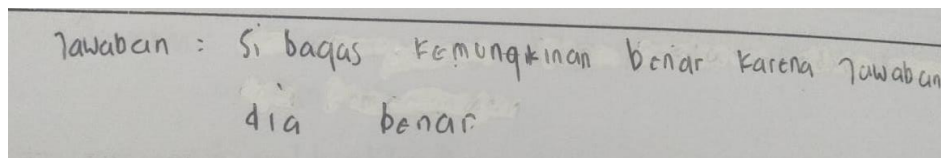 Jawaban : Si bagas kemungkinan benar karena Jawaban
dia benar